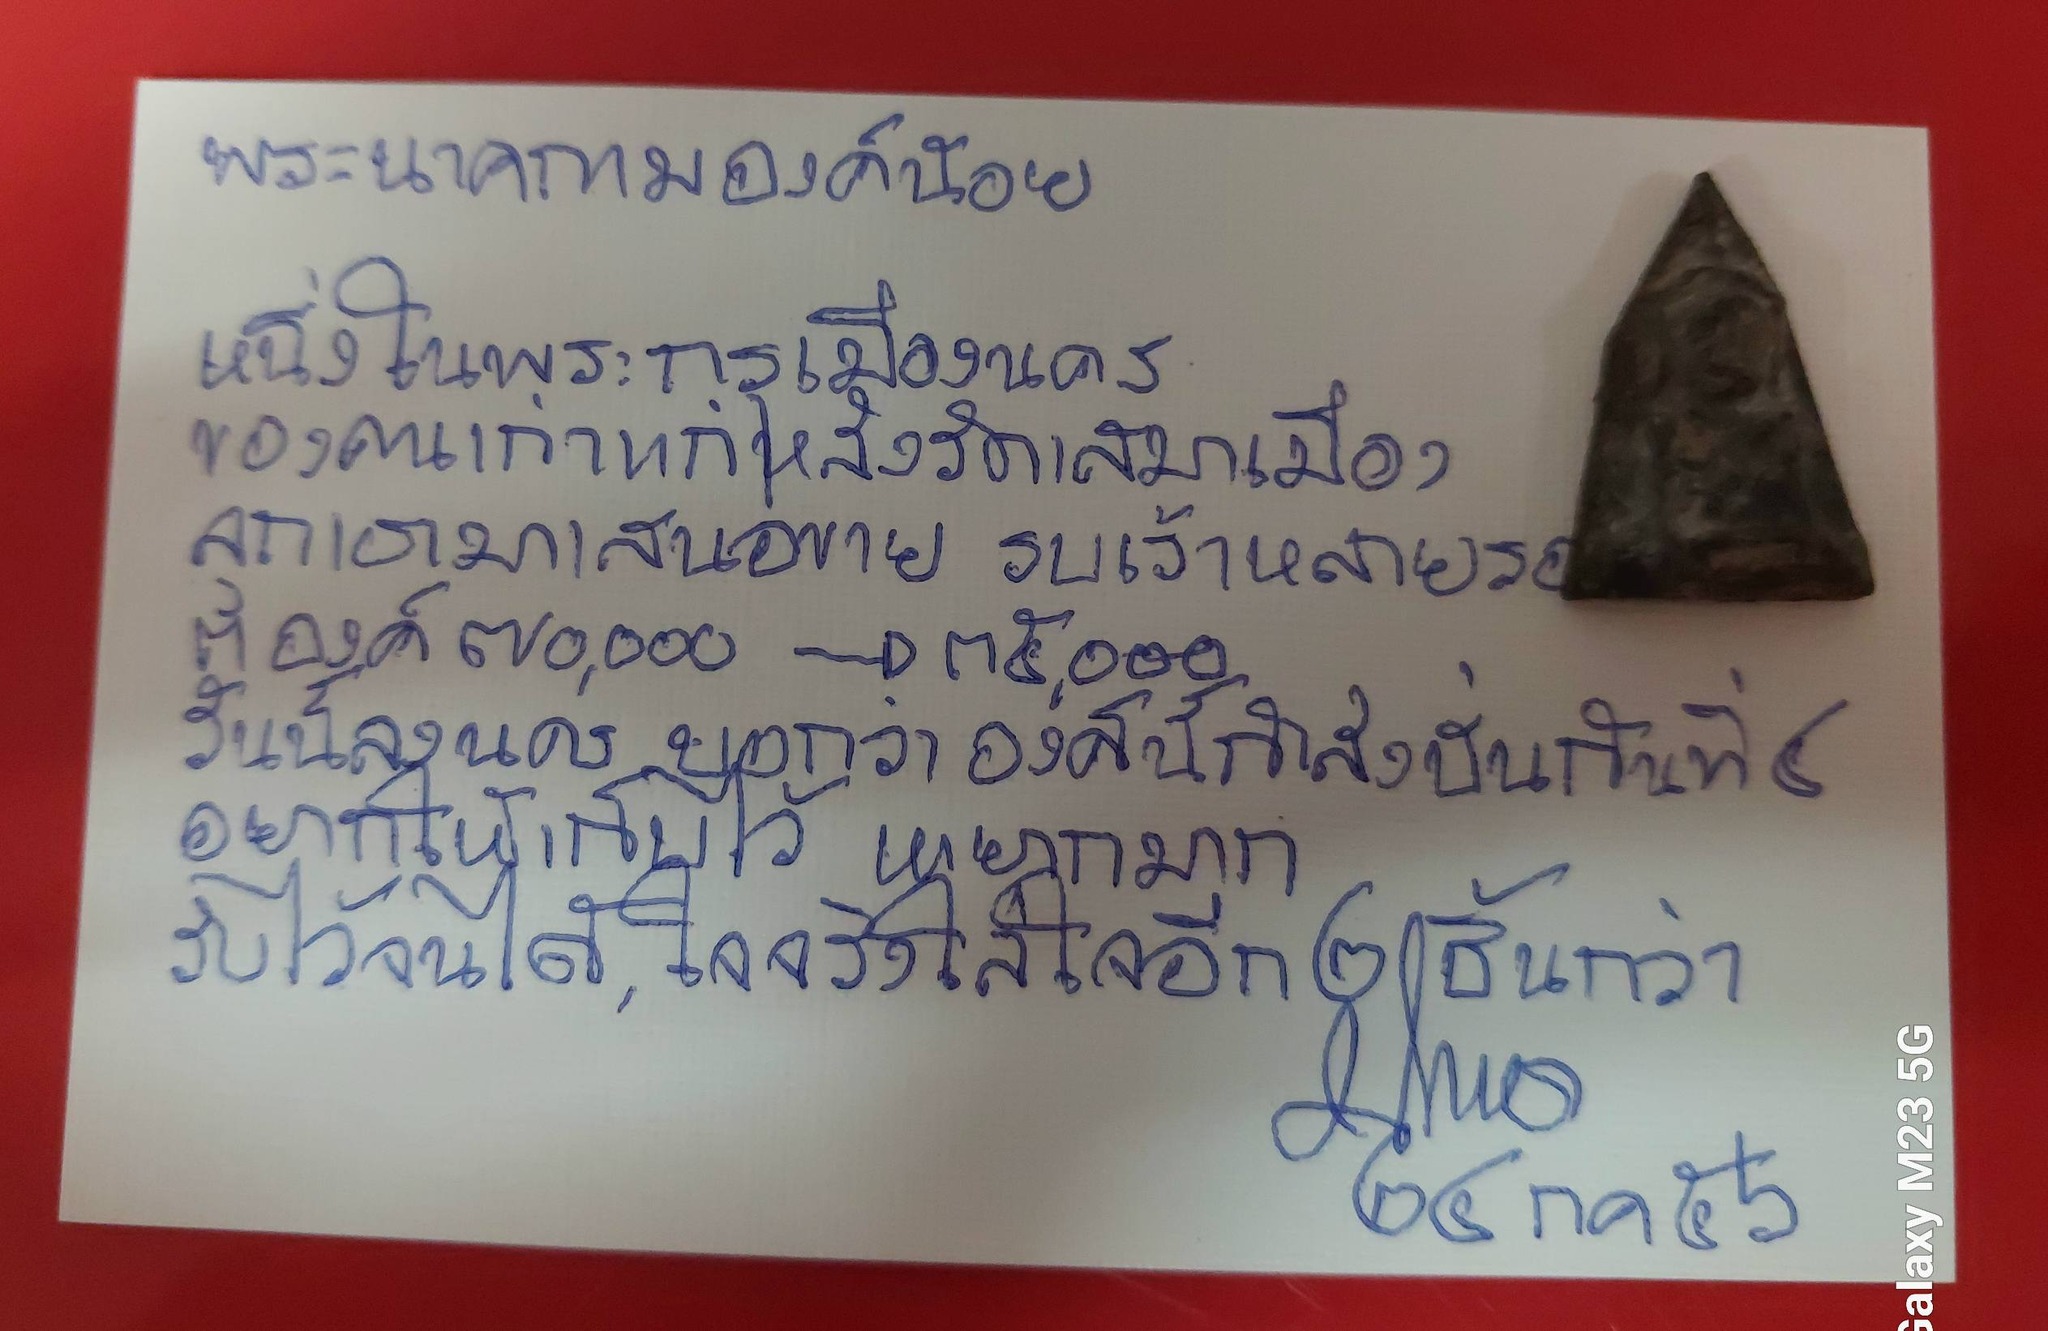 พระนาคกามองค์น้อย
หนึ่งในพระกรุเมืองนคร
ของคนเก่าแก่หลังวัดเสมาเมือง
ลูกเอามาเสนอขาย รบเร้าหลายรอ
ที่องค์ ๗๐,๐๐๐ → ๓๕,๐๐๐
วันนี้ลงนคร บอกว่า องค์นี้กำลังปั่นกันที่ ๔
อยากให้เก็บไว้ หายากมาก
รับไว้จนได้, ใจจริงใส่ใจอีก ๒ ชิ้นกว่า
๒๔ กค ๕๖
Galaxy M23 5G